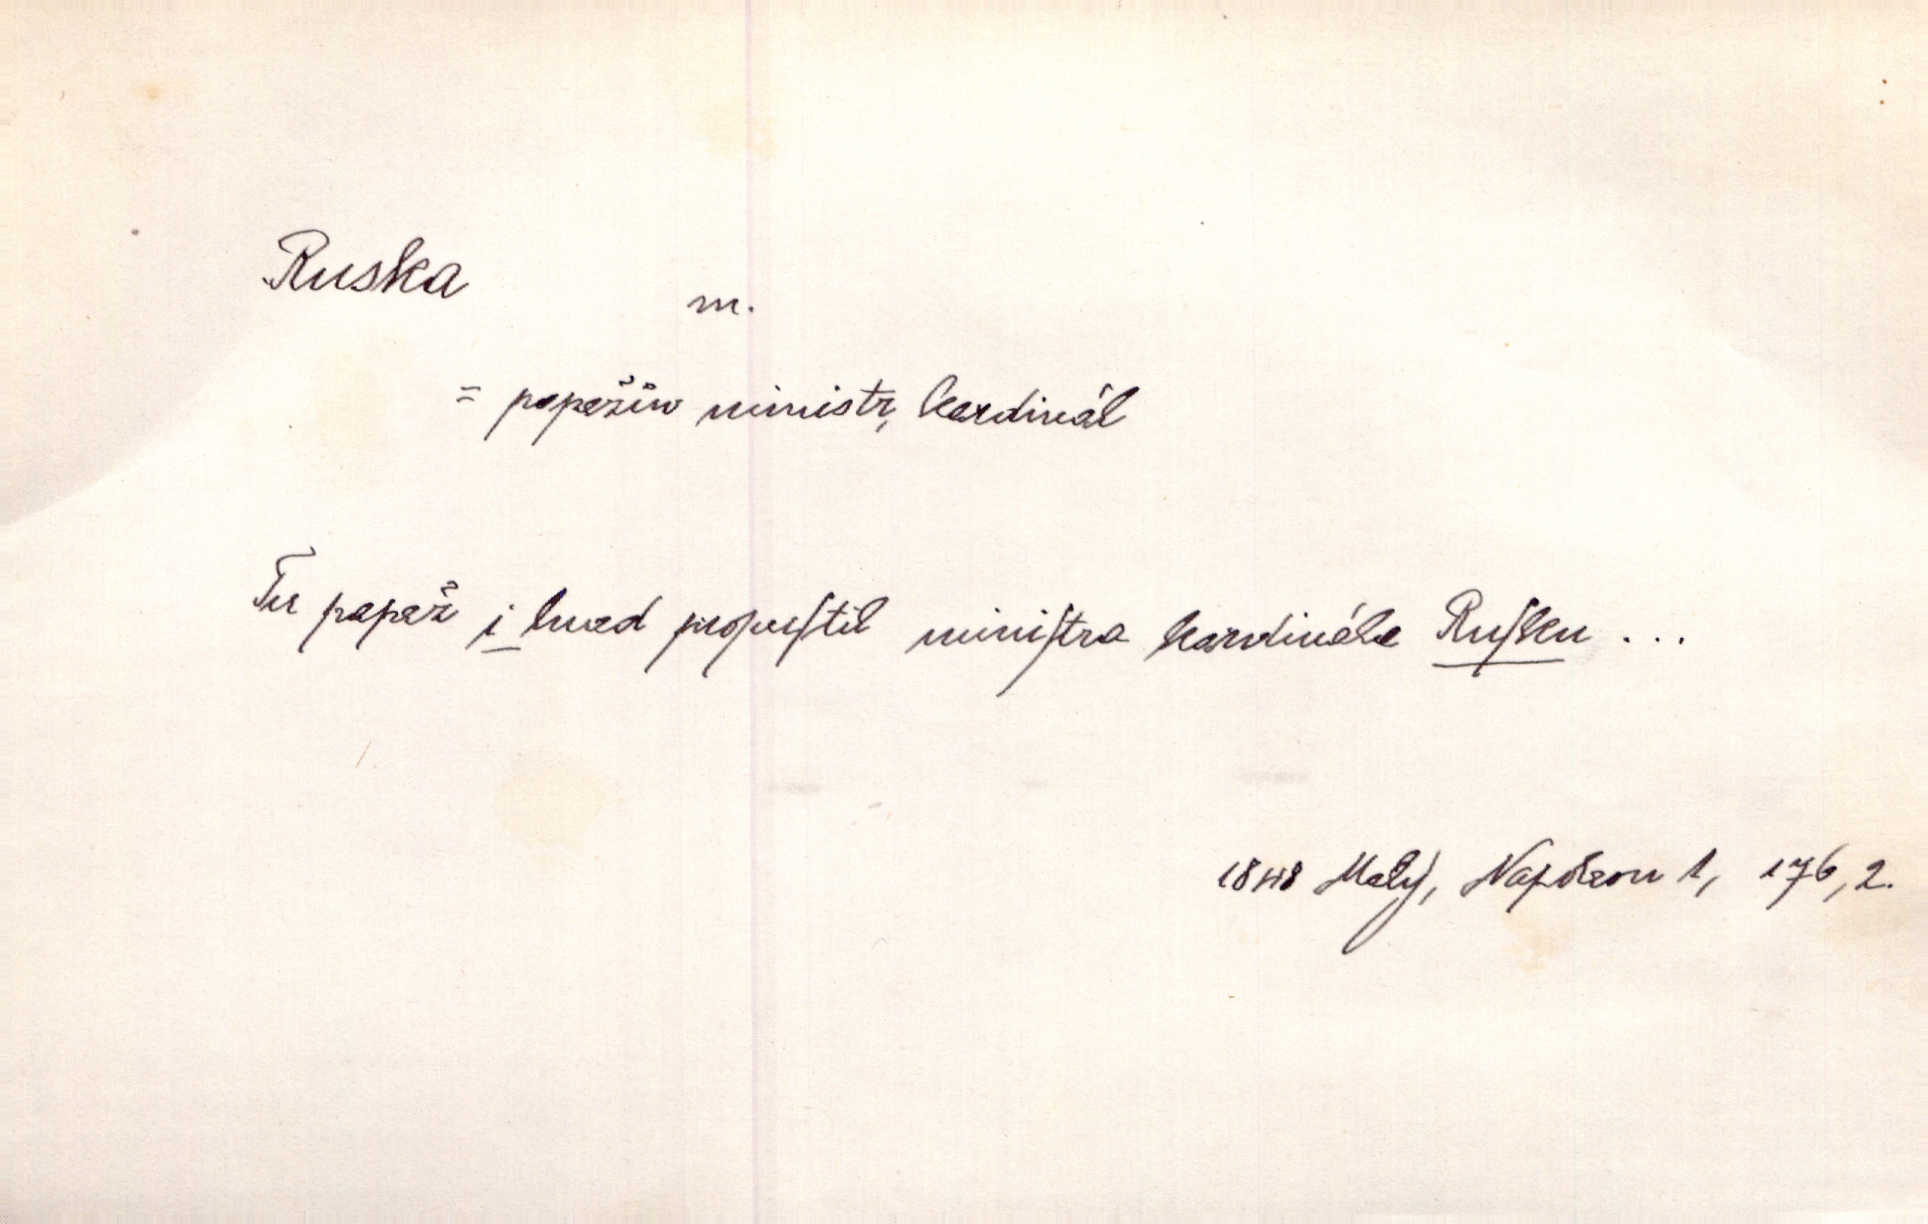 Ruska
m.
= papežův ministr, kardinál
Tu papež i hned propuſtil miniſtra kardinála Ruſku ...
1848 Malý, Napoleon 1, 176, 2.